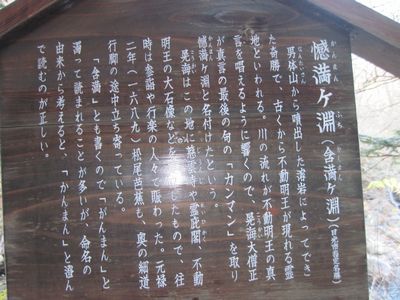 憾満ヶ淵(含満ヶ淵)(日光市指定名勝)
かんまん ふち がんまん
男体山から噴出した溶岩によってでき
た奇勝で、古くから不動明王が現れる霊
地といわれる。川の流れが不動明王の真
言を唱えるように響くので、晃海大僧正
が真言の最後の句の「カンマン」を取り
憾満ヶ淵と名付けたという。
晃海はこの地に慈雲寺や霊庇閣、不動
明王の大石像などを建立したもので、往
時は参詣や行楽の人々で賑わった。元禄
二年(一六八九)松尾芭蕉も、奥の細道
行脚の途中立ち寄っている。
「含満」とも書くので「がんまん」と
濁って読まれることが多いが、命名の
由来から考えると、「かんまん」と澄ん
で読むのが正しい。